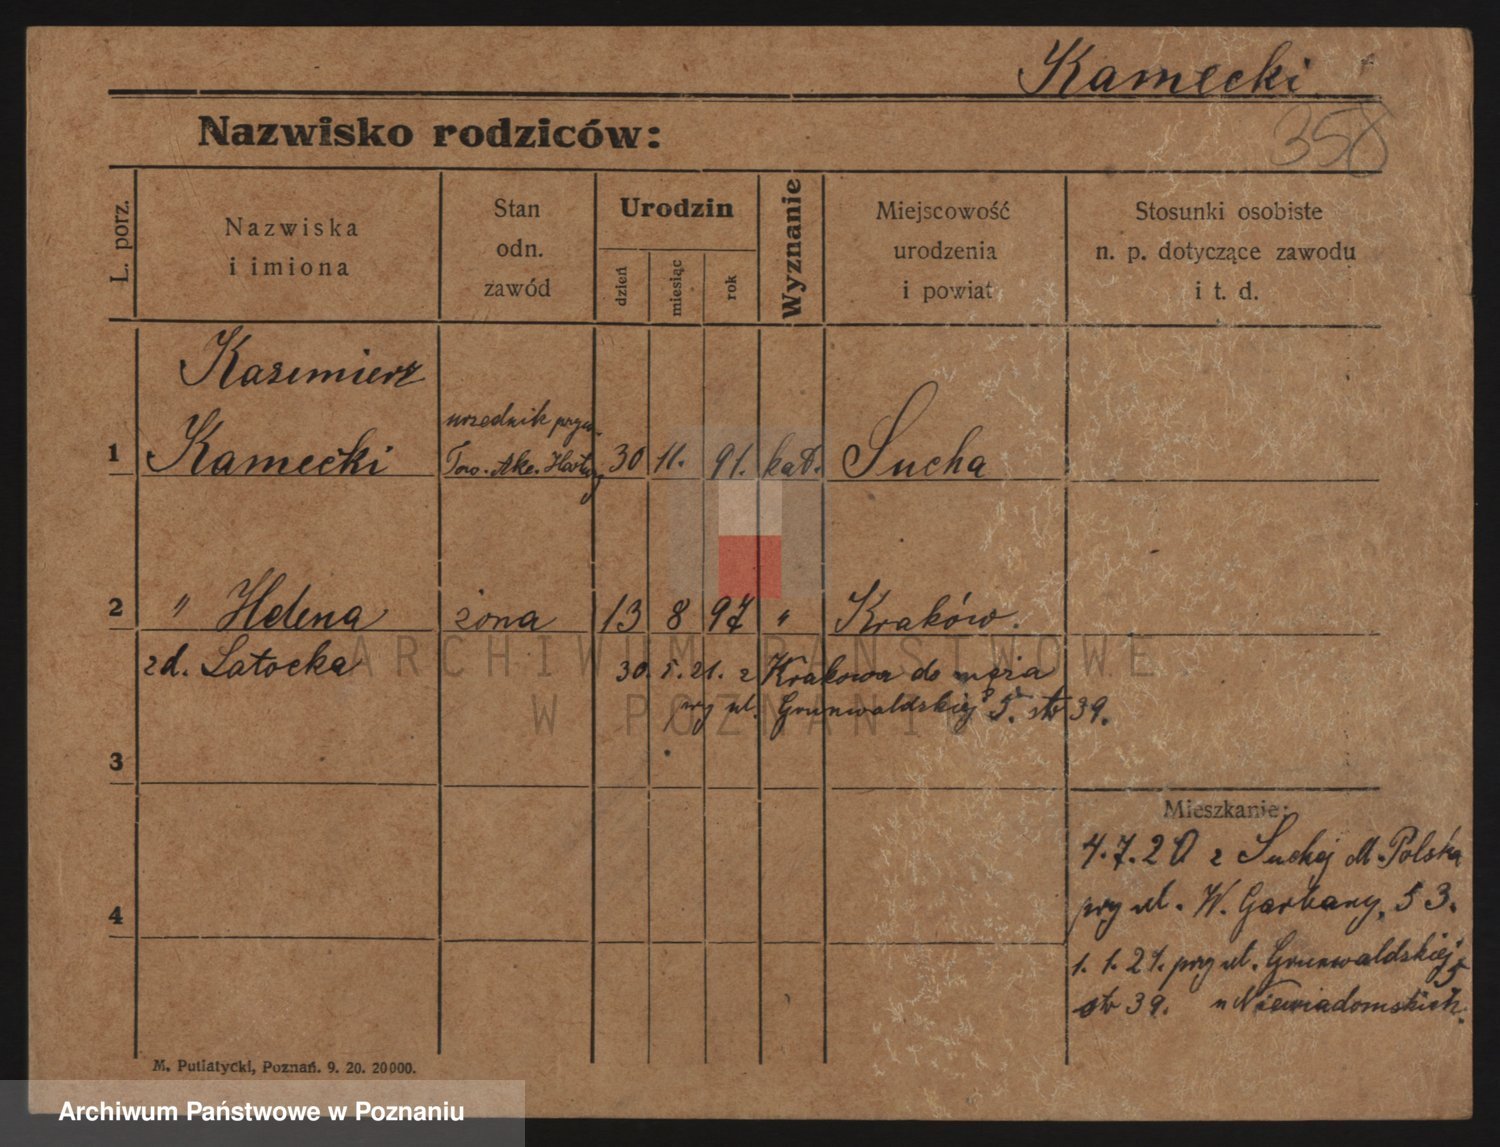 Kamecki
358
Nazwisko rodziców:
L. porz.
Nazwiska
i imiona
Stan
odn.
zawód
Urodzin
dzień
miesiąc
rok
Wyznanie
Miejscowość
urodzenia
i powiat
Stosunki osobiste
n. p. dotyczące zawodu
i t. d.
Kazimierz
1 Kamecki
urzednik pryw.
Tow. Akc. Hartwig
30 11. 91. kat. Sucha
2 " Helena żona 13 8 97 " Kraków.
zd. Latocka
30. 5. 21. z Krakowa do męża
przy ul. Grunwaldskiej 5. str 39.
3
Mieszkanie:
4.7.20 z Suchej M. Polska
przy ul. W. Garbary 53.
4
1. 1. 21. przy ul. Grunwaldskiej 5
str 39. u Niewiadomskich.
M. Putiatycki, Poznań. 9. 20. 20000.
ARCHIWUM PAŃSTWOWE
W POZNANIU
Archiwum Państwowe w Poznaniu